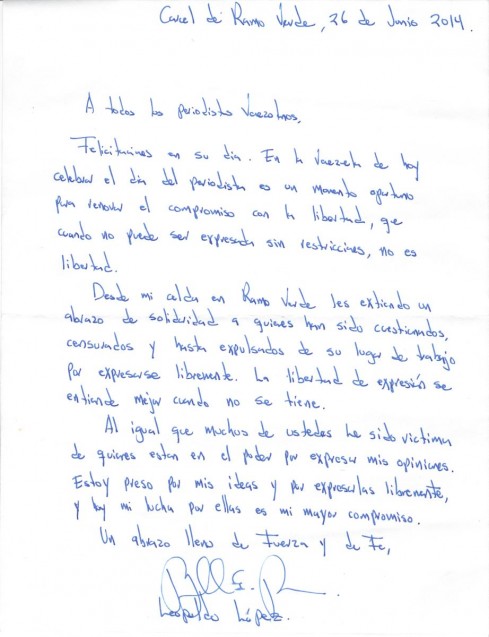 Carcel de Ramo Verde, 26 de Junio 2014.
A todos los periodistas Venezolanos,
Felicitaciones en su dia. En la Venezuela de hoy
celebrar el dia del periodista es un momento oportuno
para renovar el compromiso con la libertad, que
cuando no puede ser expresada sin restricciones, no es
libertad.
Desde mi celda en Ramo Verde les extiendo un
abrazo de solidaridad a quienes han sido cuestionados,
censurados y hasta expulsados de su lugar de trabajo
por expresarse libremente. La libertad de expresión se
entiende mejor cuando no se tiene.
Al igual que muchos de ustedes he sido victima
de quienes estan en el poder por expresar mis opiniones.
Estoy preso por mis ideas y por expresarlas libremente,
y hoy mi lucha por ellas es mi mayor compromiso.
Un abrazo lleno de Fuerza y de Fe,
Leopoldo López.